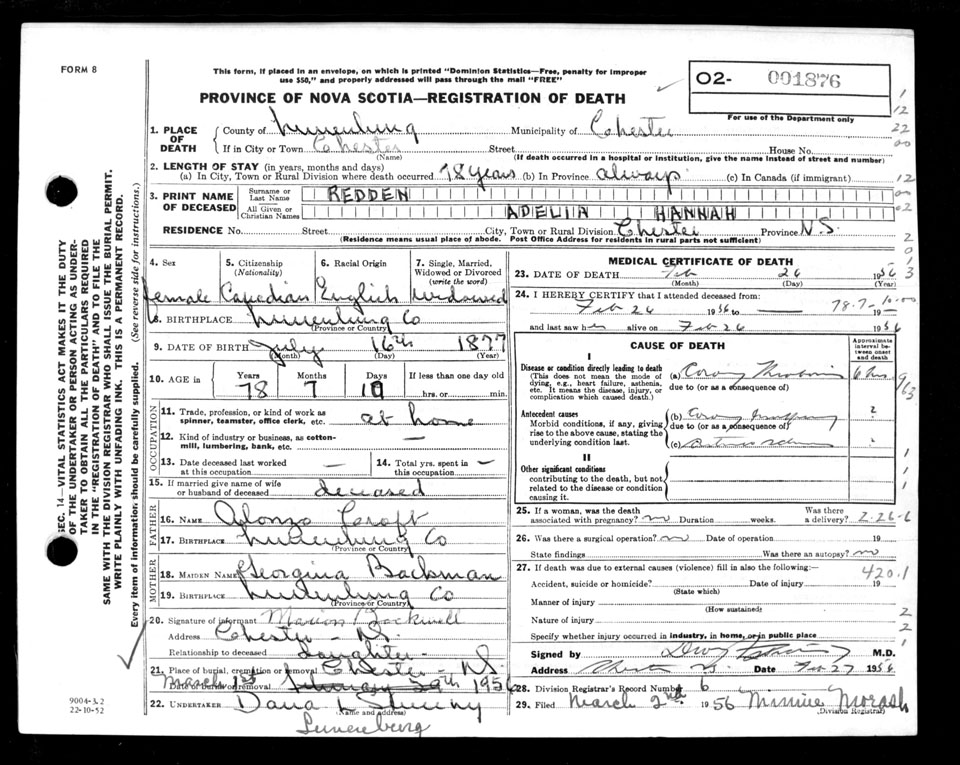 FORM 8
This form, if placed in an envelope, on which is printed "Dominion Statistics—Free, penalty for improper
use $50," and properly addressed will pass through the mail "FREE"
O2- 001876
For use of the Department only
PROVINCE OF NOVA SCOTIA—REGISTRATION OF DEATH
1. PLACE OF DEATH
County of Lunenburg Municipality of Chester
If in City or Town Chester Street House No.
(Name) (If death occurred in a hospital or institution, give the name instead of street and number)
2. LENGTH OF STAY (in years, months and days)
(a) In City, Town or Rural Division where death occurred 78 years (b) In Province always (c) In Canada (if immigrant)
3. PRINT NAME OF DECEASED
Surname or Last Name REDDEN
All Given or Christian Names ADELIA HANNAH
RESIDENCE No. Street City, Town or Rural Division Chester Province N.S.
(Residence means usual place of abode. Post Office Address for residents in rural parts not sufficient)
4. Sex 5. Citizenship (Nationality) 6. Racial Origin 7. Single, Married, Widowed or Divorced (write the word)
female Canadian English widowed
8. BIRTHPLACE Lunenburg Co
(Province or Country)
9. DATE OF BIRTH July 16th 1877
(Month) (Day) (Year)
10. AGE in Years Months Days If less than one day old
78 7 10 hrs. or min.
OCCUPATION
11. Trade, profession, or kind of work as spinner, teamster, office clerk, etc. at home
12. Kind of industry or business, as cotton-mill, lumbering, bank, etc. —
13. Date deceased last worked at this occupation — 14. Total yrs. spent in this occupation —
15. If married give name of wife or husband of deceased deceased
FATHER
16. NAME Alonzo Croft
17. BIRTHPLACE Lunenburg Co
(Province or Country)
MOTHER
18. MAIDEN NAME Georgina Backman
19. BIRTHPLACE Lunenburg Co
(Province or Country)
20. Signature of informant Marion
Address Chester - N.S.
Relationship to deceased daughter
21. Place of burial, cremation or removal Chester - N.S.
Date of burial or removal March 1st February 29th 1956
22. UNDERTAKER Dana
(Name and address)
Lunenburg
MEDICAL CERTIFICATE OF DEATH
23. DATE OF DEATH Feb 26 1956
(Month) (Day) (Year)
24. I HEREBY CERTIFY that I attended deceased from:
78.7-10.00
Feb 26 1956 to — 19—
and last saw her alive on Feb 26 1956
CAUSE OF DEATH
Approximate interval between onset and death
I
Disease or condition directly leading to death
(This does not mean the mode of dying, e.g., heart failure, asthenia, etc. It means the disease, injury, or complication which caused death.)
(a) 6 hrs.
due to (or as a consequence of)
Antecedent causes
Morbid conditions, if any, giving rise to the above cause, stating the underlying condition last.
(b) ?
due to (or as a consequence of)
(c)
II
Other significant conditions
contributing to the death, but not related to the disease or condition causing it.
25. If a woman, was the death associated with pregnancy? no Duration weeks. Was there a delivery? 2-26-6
26. Was there a surgical operation? no Date of operation 19
State findings Was there an autopsy? no
27. If death was due to external causes (violence) fill in also the following:
420.1
Accident, suicide or homicide? Date of injury 19
(State which)
Manner of injury
(How sustained)
Nature of injury
Specify whether injury occurred in industry, in home, or in public place
Signed by M.D.
Address Chester N.S. Date Feb 27 1956
28. Division Registrar's Record Number 6
29. Filed March 2nd 1956 Minnie Morash
(Division Registrar)
SEC. 14—VITAL STATISTICS ACT MAKES IT THE DUTY
OF THE UNDERTAKER OR PERSON ACTING AS UNDER-
TAKER TO OBTAIN ALL THE PARTICULARS REQUIRED
IN THE "REGISTRATION OF DEATH" AND TO FILE THE
SAME WITH THE DIVISION REGISTRAR WHO SHALL ISSUE THE BURIAL PERMIT.
WRITE PLAINLY WITH UNFADING INK. THIS IS A PERMANENT RECORD.
Every item of information should be carefully supplied. (See reverse side for instructions.)
9004-3.2
22-10-52